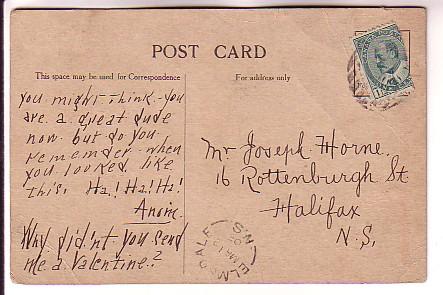 POST CARD
This space may be used for Correspondence
For address only
You might think you
are a great dude
now. but do you
remember when
you looked like
this. Ha! Ha! Ha!
Anon.
Why didn't you send
me a Valentine?
Mr Joseph Horne.
16 Rottenburgh St
Halifax
N.S.
ELMSDALE
N.S.